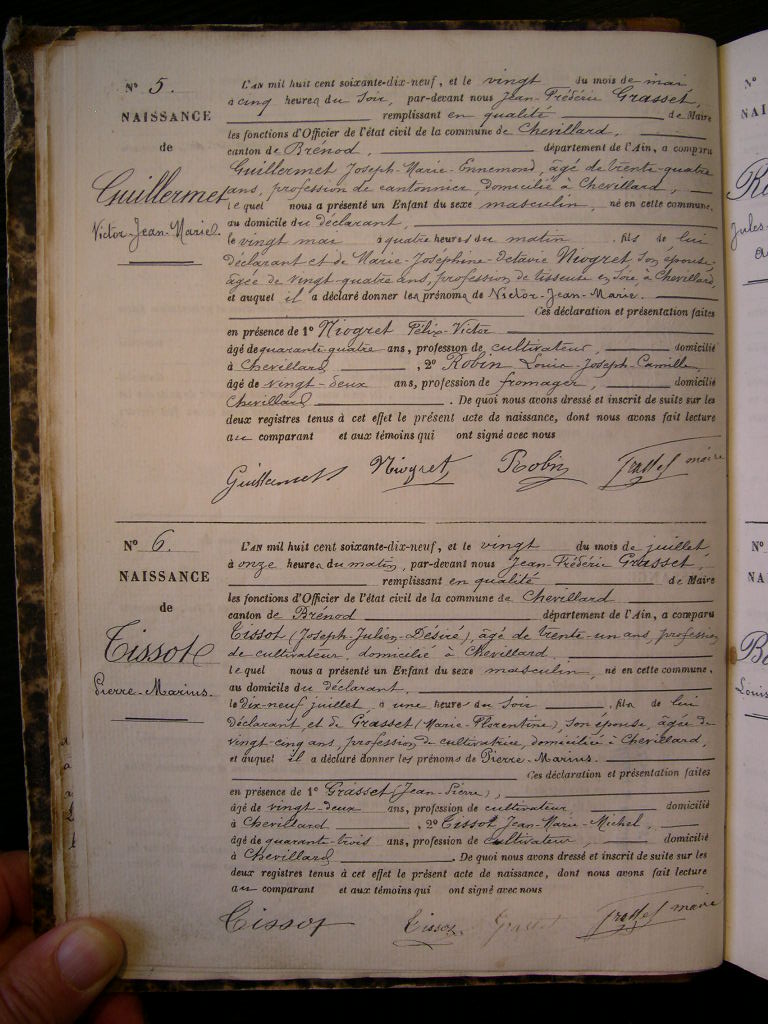 N° 5.
NAISSANCE
de
Guillermet
Victor-Jean-Marie.
L'AN mil huit cent soixante-dix-neuf, et le vingt du mois de mai
à cinq heures du Soir, par-devant nous Jean-Frédéric Grasset,
remplissant en qualité de Maire
les fonctions d'Officier de l'état civil de la commune de Chevillard,
canton de Brénod, département de l'Ain, a comparu
Guillermet Joseph-Marie-Ennemond, âgé de trente-quatre
ans, profession de cantonnier, domicilié à Chevillard,
lequel nous a présenté un Enfant du sexe masculin, né en cette commune,
au domicile du déclarant,
le vingt mai à quatre heures du matin fils de lui
déclarant et de Marie-Joséphine-Octavie Niogret son épouse,
âgée de vingt-quatre ans, profession de tisseuse en Soie, à Chevillard,
et auquel il a déclaré donner les prénoms de Victor-Jean-Marie.
Ces déclaration et présentation faites
en présence de 1° Niogret Félix-Victor
âgé de quarante-quatre ans, profession de cultivateur, domicilié
à Chevillard, 2° Robin Louis-Joseph-Camille,
âgé de vingt-deux ans, profession de fromager, domicilié
Chevillard. De quoi nous avons dressé et inscrit de suite sur les
deux registres tenus à cet effet le présent acte de naissance, dont nous avons fait lecture
au comparant et aux témoins qui ont signé avec nous
Guillermet Niogret Robin Grasset maire
N° 6.
NAISSANCE
de
Tissot
Pierre-Marius.
L'AN mil huit cent soixante-dix-neuf, et le vingt du mois de juillet,
à onze heures du matin, par-devant nous Jean-Frédéric Grasset,
remplissant en qualité de Maire
les fonctions d'Officier de l'état civil de la commune de Chevillard
canton de Brénod département de l'Ain, a comparu
Tissot (Joseph-Julien-Désiré), âgé de trente-un ans, profession
de cultivateur, domicilié à Chevillard
lequel nous a présenté un Enfant du sexe masculin, né en cette commune,
au domicile du déclarant,
le dix-neuf juillet, à une heure du Soir, fils de lui
Déclarant, et de Grasset (Marie-Florentine), son épouse, âgée de
vingt-cinq ans, profession de cultivatrice, domiciliée à Chevillard,
et auquel il a déclaré donner les prénoms de Pierre-Marius.
Ces déclaration et présentation faites
en présence de 1° Grasset (Jean-Pierre),
âgé de vingt-deux ans, profession de cultivateur domicilié
à Chevillard, 2° Tissot Jean-Marie-Michel,
âgé de quarante-trois ans, profession de cultivateur, domicilié
à Chevillard. De quoi nous avons dressé et inscrit de suite sur les
deux registres tenus à cet effet le présent acte de naissance, dont nous avons fait lecture
au comparant et aux témoins qui ont signé avec nous
Tissot Tissot Grasset Grasset maire